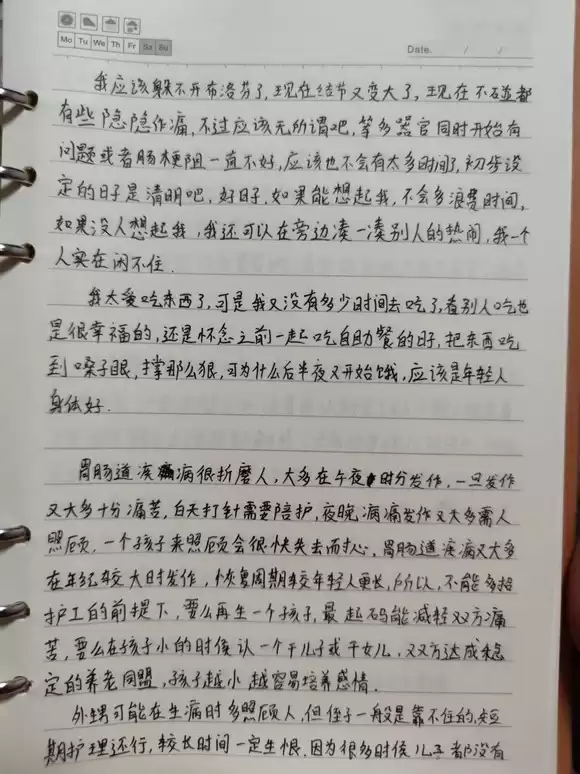 Mo Tu We Th Fr Sa Su
Date. / /
我应该躲不开布洛芬了,现在结节又变大了,现在不碰都
有些隐隐作痛,不过应该无所谓吧,等多器官同时开始有
问题或者肠梗阻一直不好,应该也不会有太多时间了,初步设
定的日子是清明吧,好日子,如果能想起我,不会多浪费时间,
如果没人想起我,我还可以在旁边凑一凑别人的热闹,我一个
人实在闲不住.
我太爱吃东西了,可是我又没有多少时间去吃了,看别人吃也
是很幸福的,还是怀念之前一起吃自助餐的日子,把东西吃
到嗓子眼,撑那么狠,可为什么后半夜又开始饿,应该是年轻人
身体好.
胃肠道疾病很折磨人,大多在午夜时分发作,一旦发作
又大多十分痛苦,白天打针需要陪护,夜晚病痛发作又大多需人
照顾,一个孩子来照顾会很快失去耐心,胃肠道疾病又大多
在年纪较大时发作,恢复周期较年轻人更长,所以,不能多招
护工的前提下,要么再生一个孩子,最起码能减轻双方痛
苦,要么在孩子小的时候认一个干儿子或干女儿,双方达成稳
定的养老同盟,孩子越小越容易培养感情.
外甥可能在生病时多照顾人,但侄子一般是靠不住的,短
期护理还行,较长时间一定生恨,因为很多时候儿子都没有